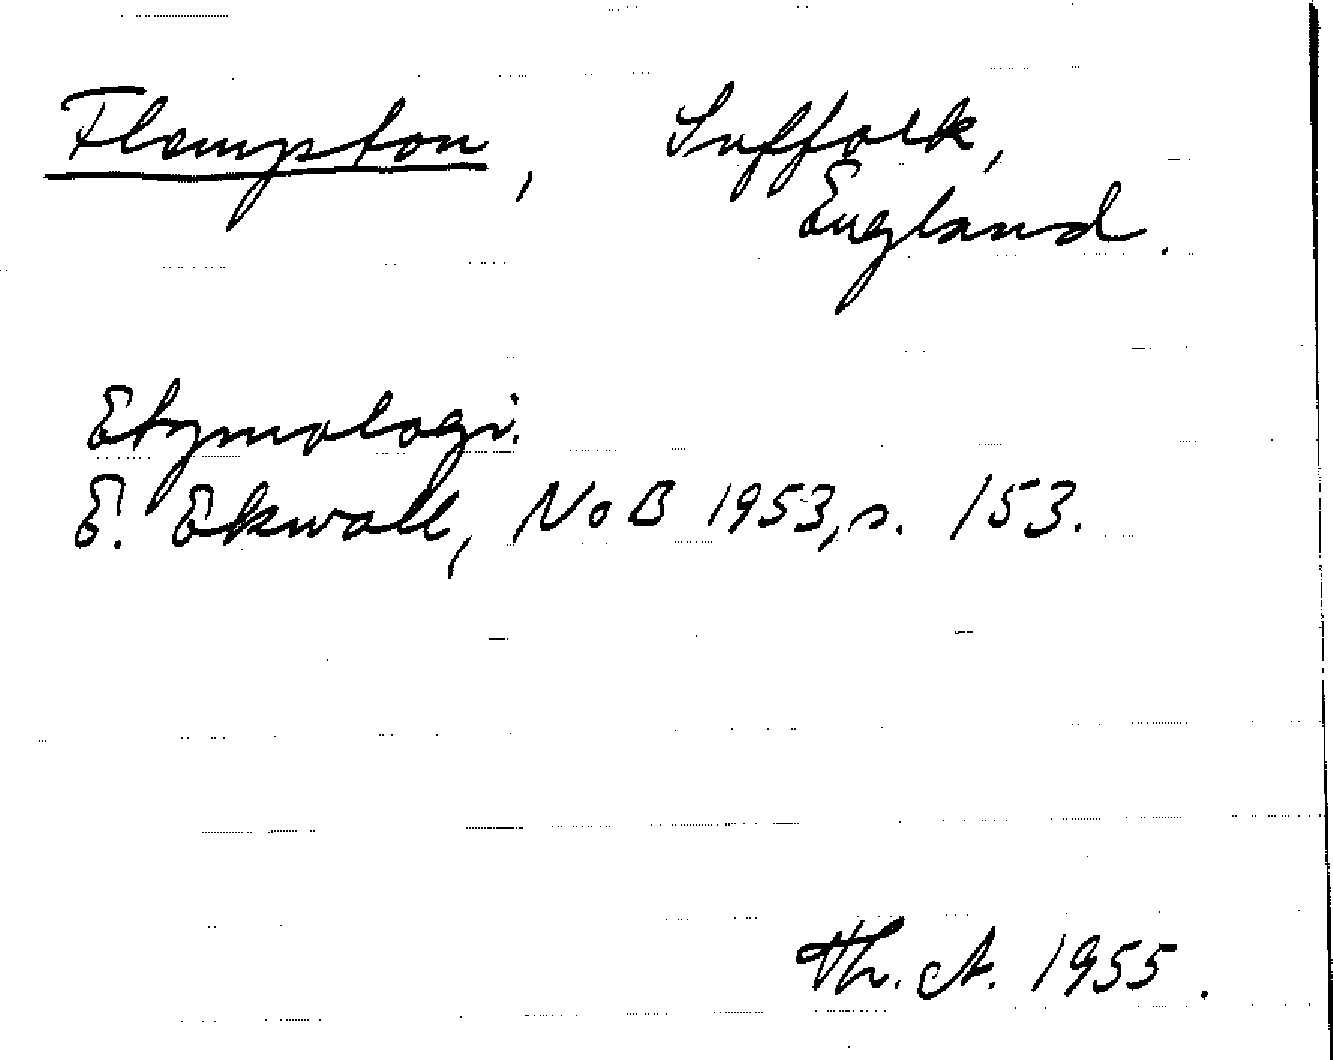 Flempton, Suffolk,
England.
Etymologi.
E. Ekwall, NoB 1953, s. 153.
Th. A. 1955.